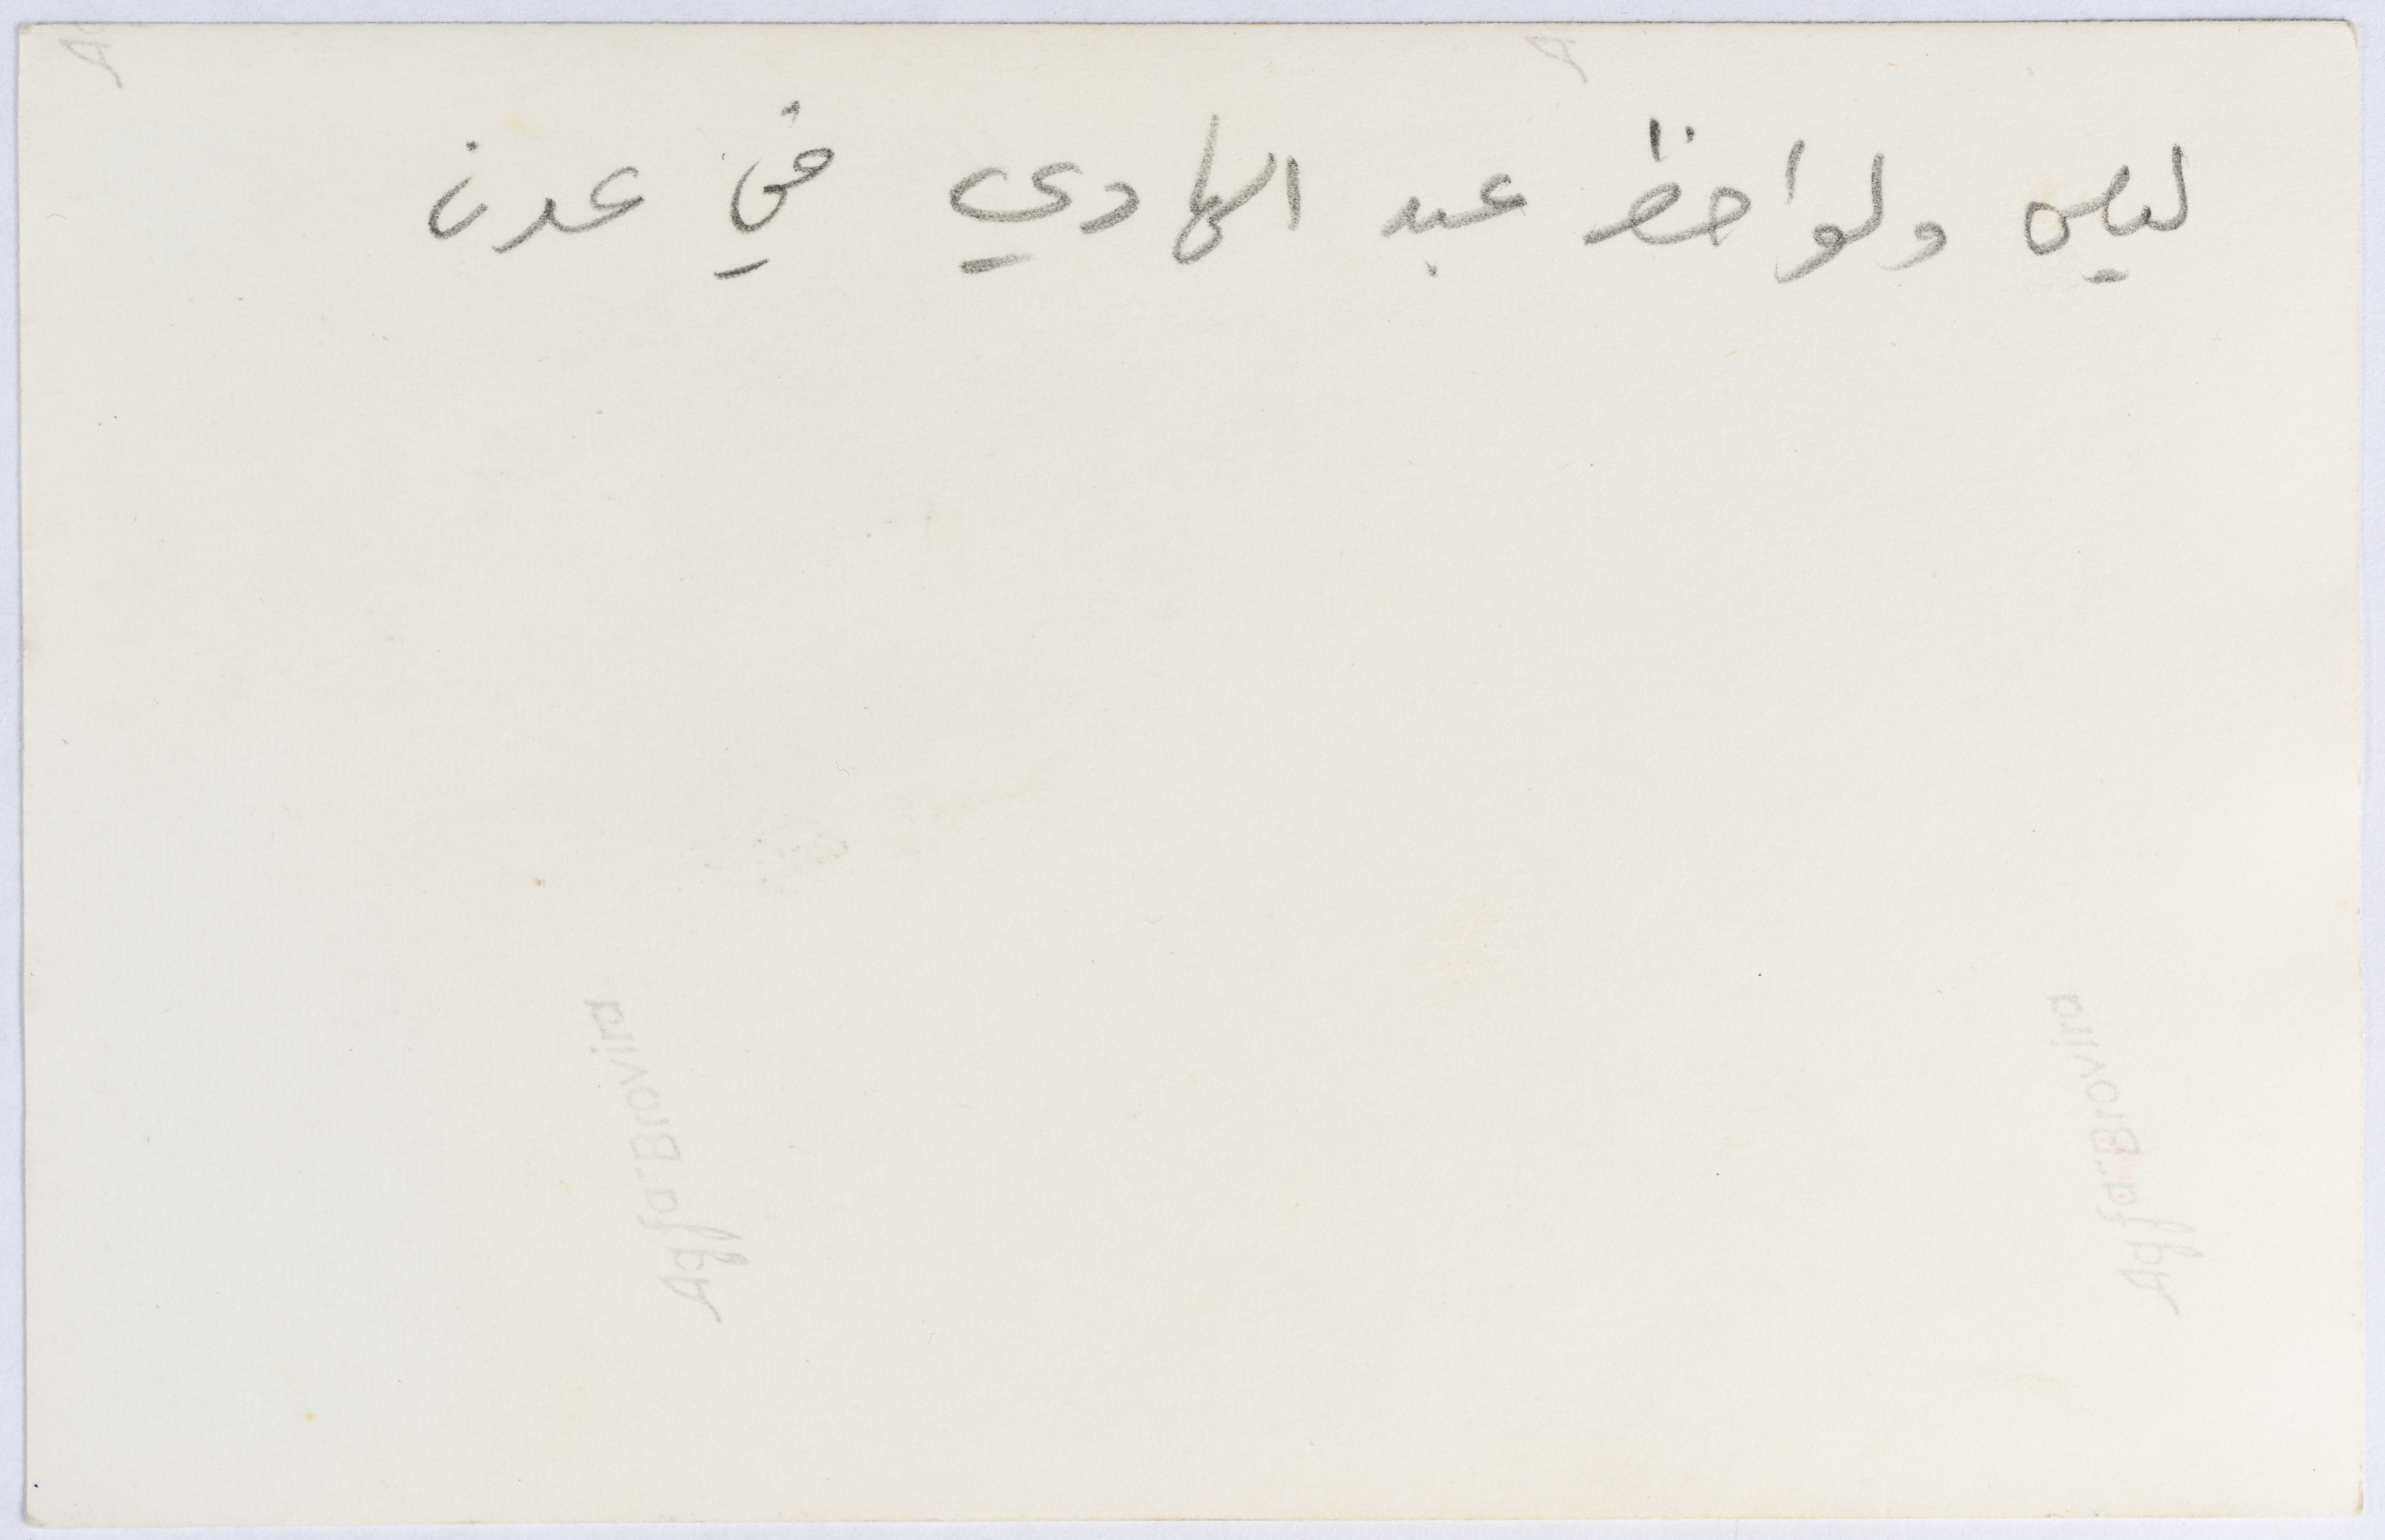 ليلى ولواحظ عبد الهادي في عدن
Agfa-Brovira
Agfa-Brovira